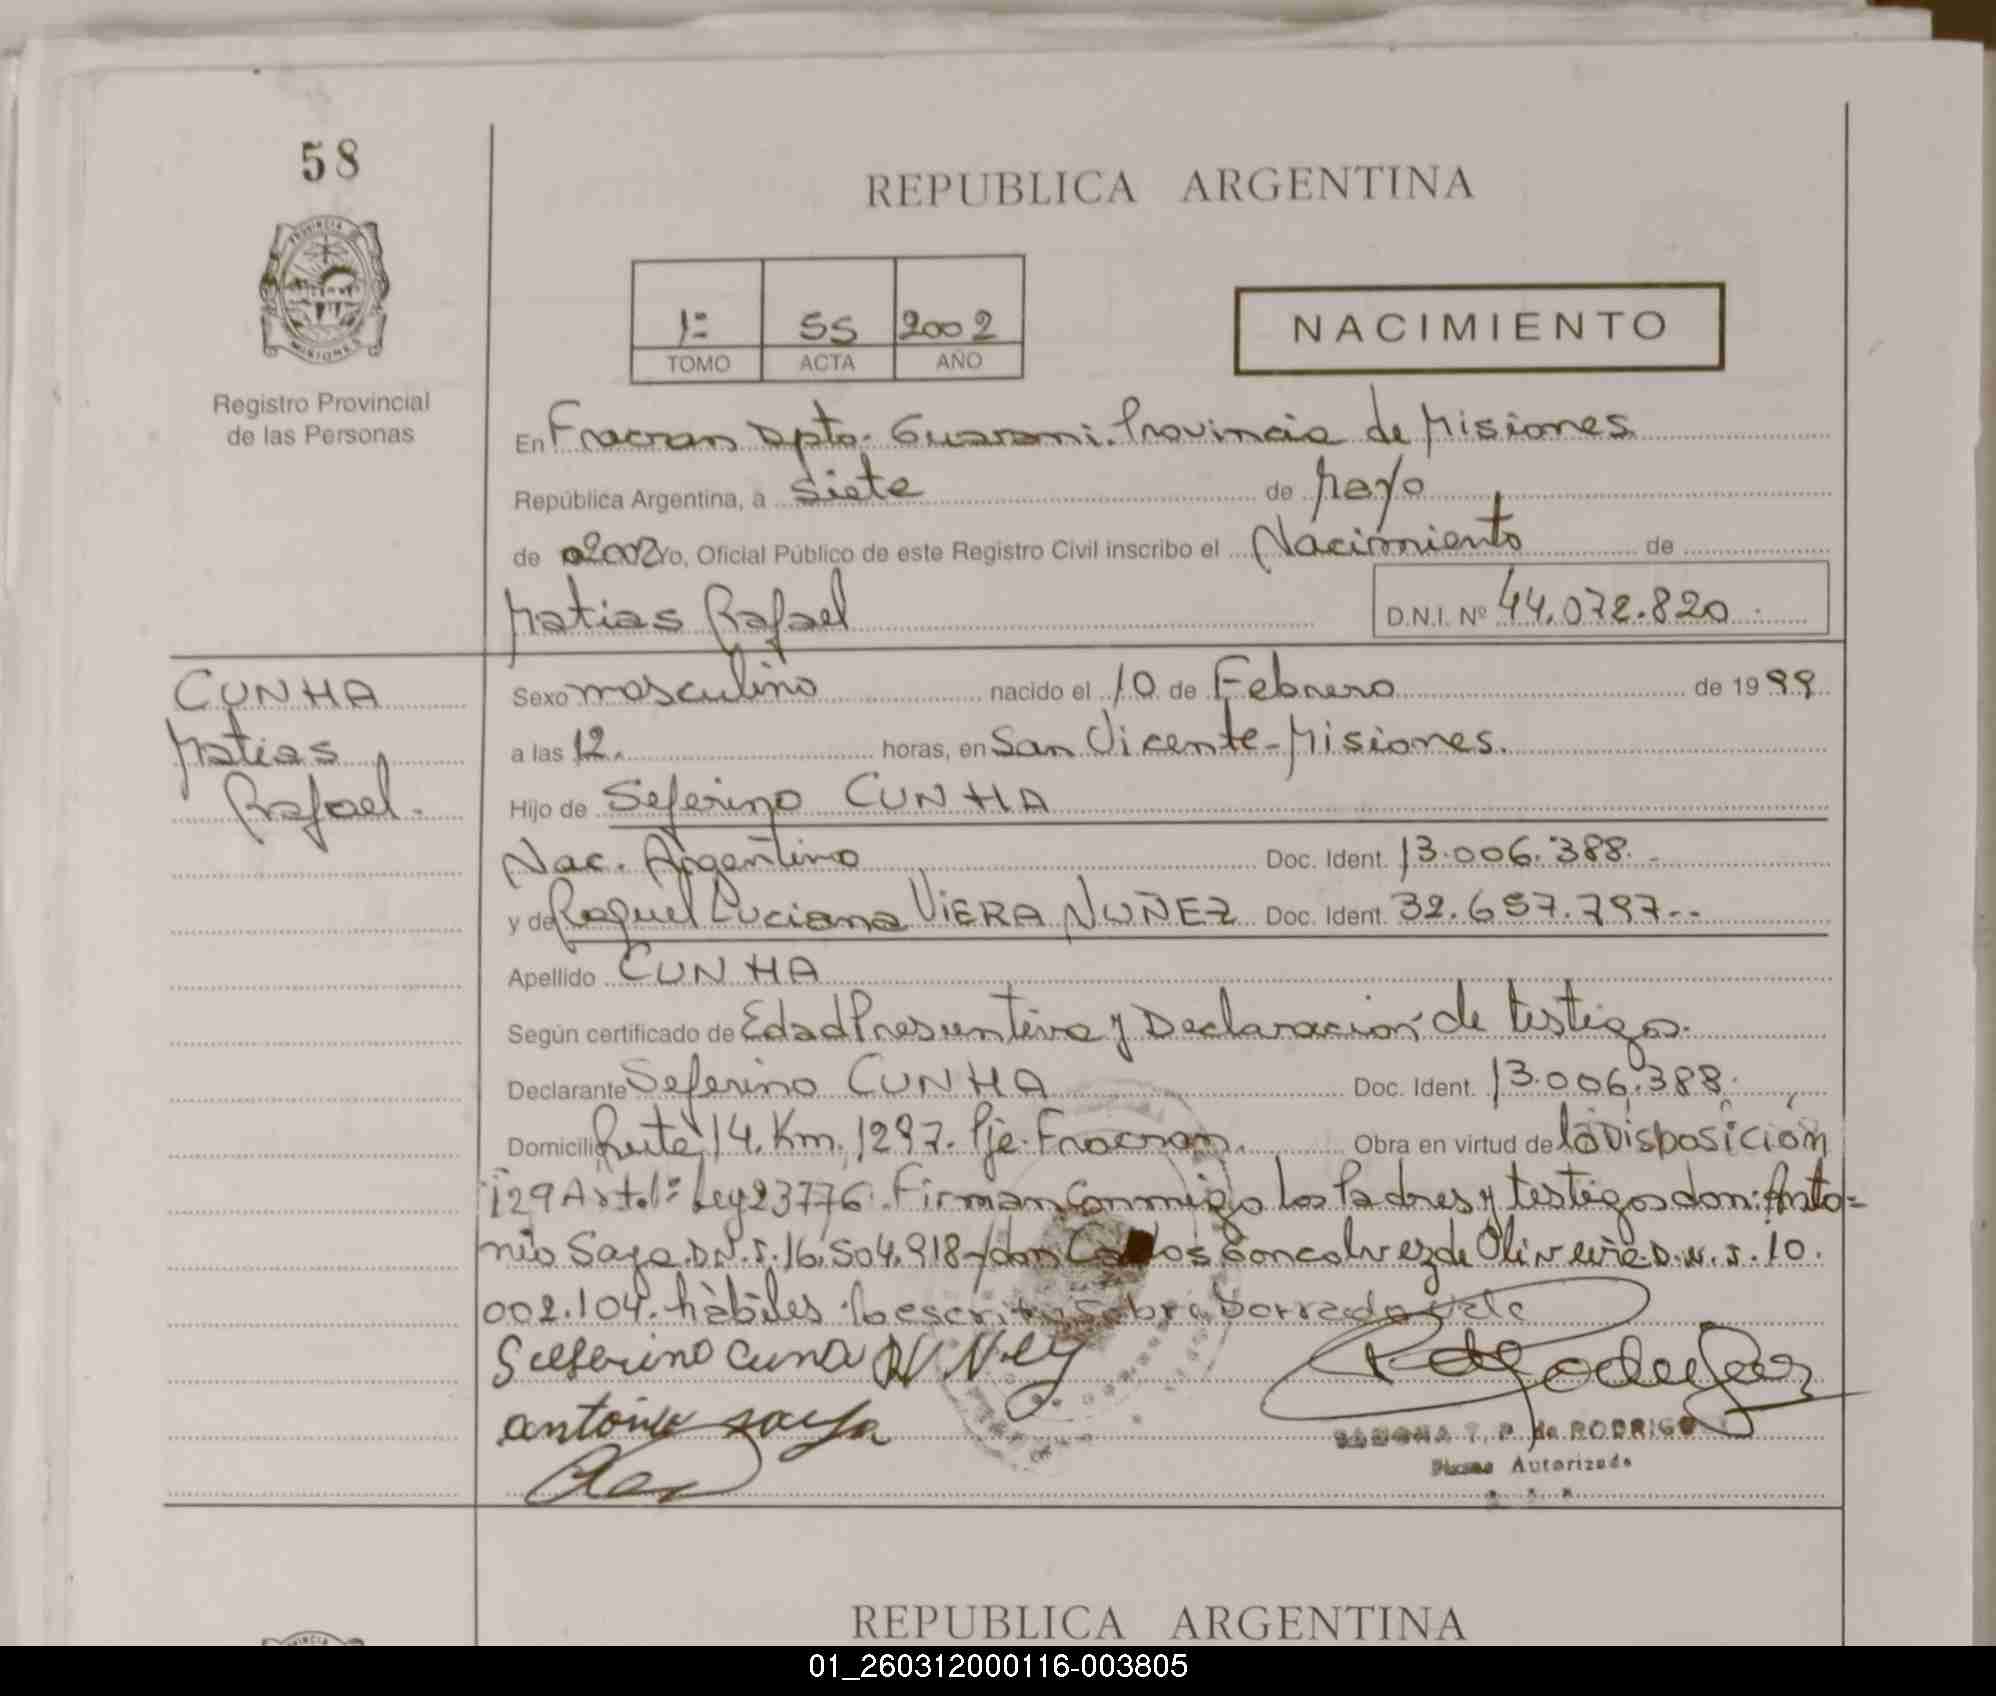 58
REPUBLICA ARGENTINA
PROVINCIA DE
MISIONES
Registro Provincial
de las Personas
1º 55 2002
TOMO ACTA AÑO
NACIMIENTO
En Fracran Dpto. Guarani. Provincia de Misiones
República Argentina, a siete de Mayo
de 2002 Yo, Oficial Público de este Registro Civil inscribo el Nacimiento de
Matias Rafael
D.N.I. Nº 44.072.820
CUNHA
Matias
Rafael.
Sexo masculino nacido el 10 de Febrero de 1999
a las 12. horas, en San Vicente-Misiones.
Hijo de Seferino CUNHA
Nac. Argentino Doc. Ident. 13.006.388.-
y de Raquel Luciana VIERA NUÑEZ Doc. Ident. 32.657.797--
Apellido CUNHA
Según certificado de Edad Presuntiva y Declaración de testigos.
Declarante Seferino CUNHA Doc. Ident. 13.006.388.
Domicilio Ruta 14. Km. 1297. Pje. Fracran. Obra en virtud de la Disposición
129 Art. 1º Ley 23776. Firman conmigo los Padres y testigos don: Anto=
nio Saya D.N.I. 16.504.918-/don Carlos Goncalvez de Oliveira D.N.I. 10.
002.104. hàbiles. lo escrito sobre borrado vale
Selferino cuna
antonio saya
RAMONA T. P. de RODRIGUEZ
Firma Autorizada
REPUBLICA ARGENTINA
01_260312000116-003805